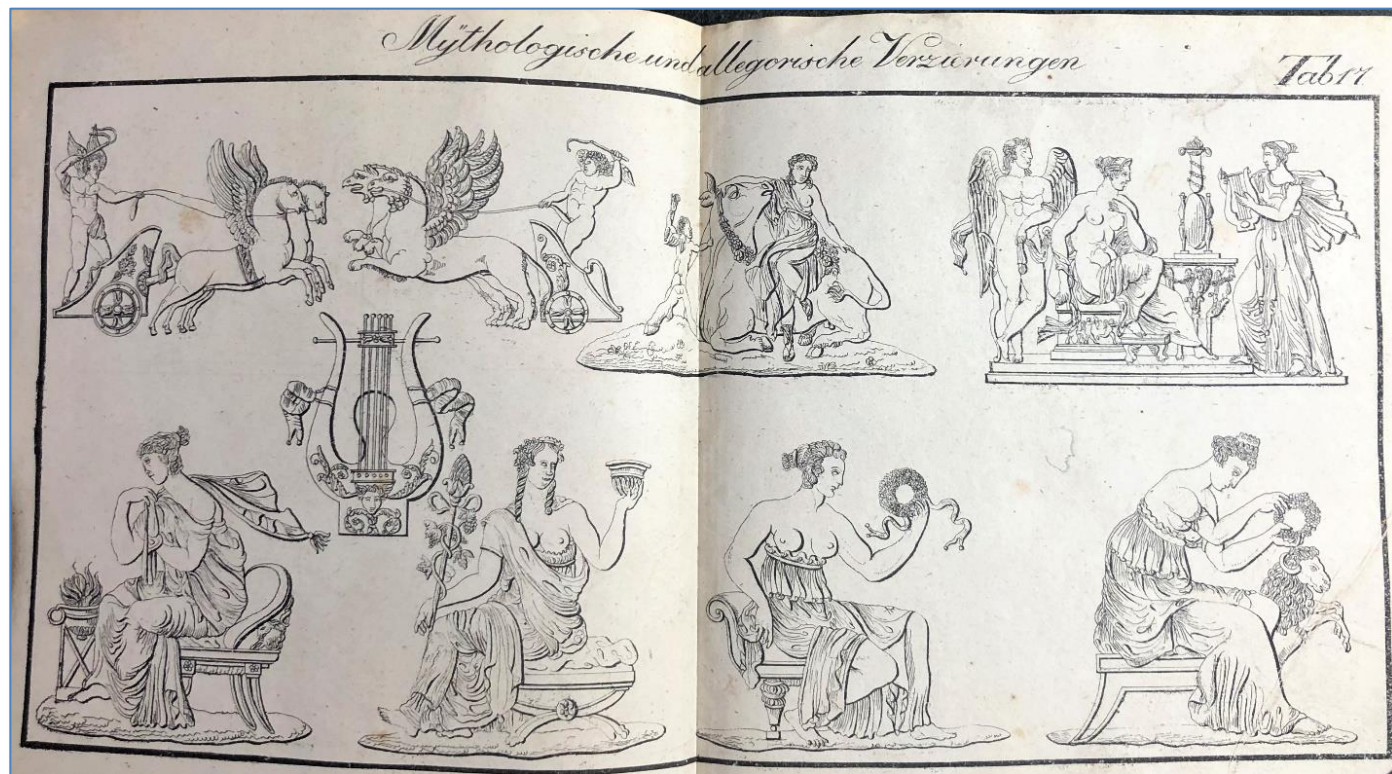 Mÿthologische und allegorische Verzierungen
Tab 17.